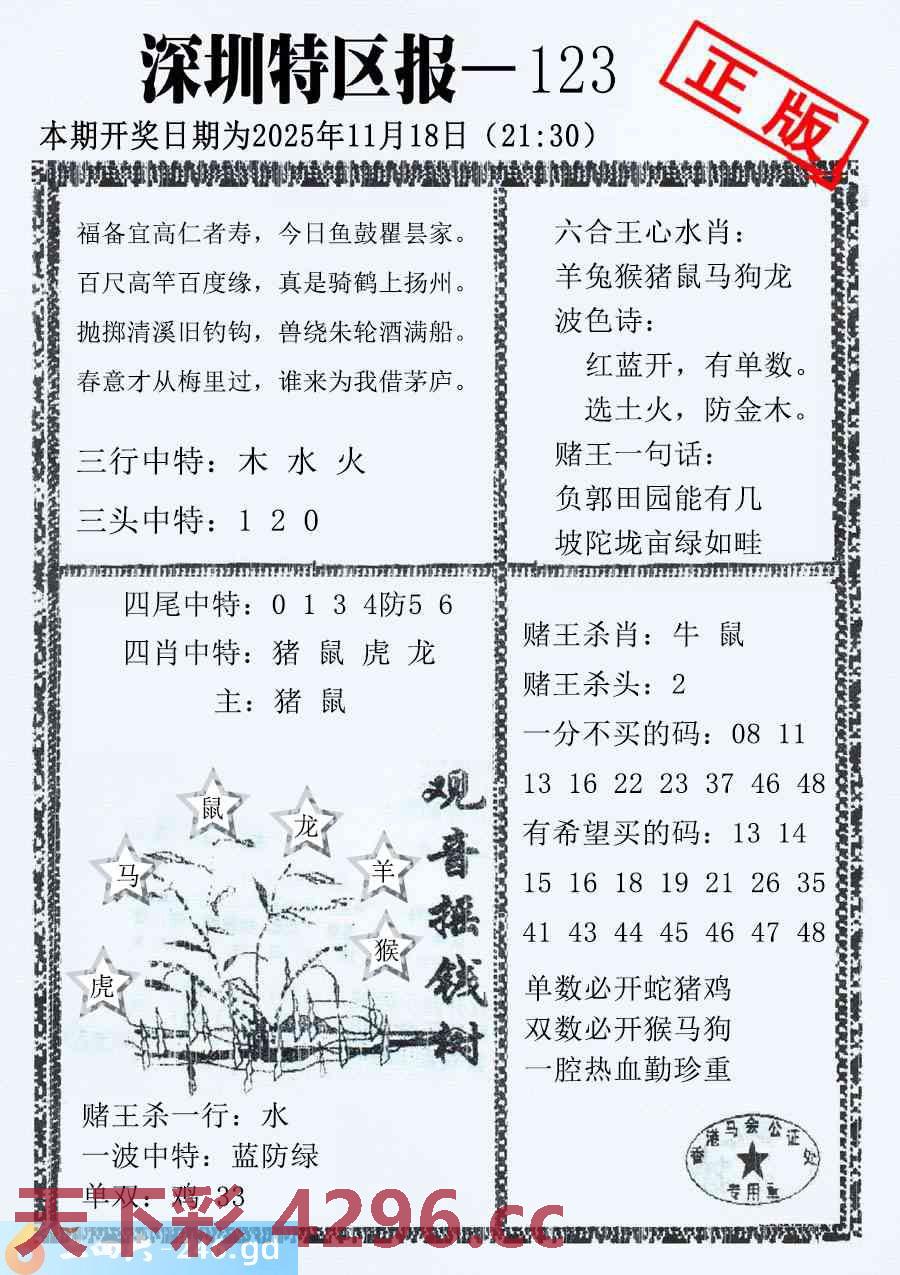 深圳特区报—123
正版
本期开奖日期为2025年11月18日（21:30）
福备宜高仁者寿，今日鱼鼓瞿昙家。
百尺高竿百度缘，真是骑鹤上扬州。
抛掷清溪旧钓钩，兽绕朱轮酒满船。
春意才从梅里过，谁来为我借茅庐。
三行中特：木 水 火
三头中特：1 2 0
六合王心水肖：
羊兔猴猪鼠马狗龙
波色诗：
红蓝开，有单数。
选土火，防金木。
赌王一句话：
负郭田园能有几
坡陀垅亩绿如畦
四尾中特：0 1 3 4防5 6
四肖中特：猪 鼠 虎 龙
主：猪 鼠
鼠
龙
马
羊
猴
虎
观音摇钱树
赌王杀一行：水
一波中特：蓝防绿
单双：鸡 33
赌王杀肖：牛 鼠
赌王杀头：2
一分不买的码：08 11
13 16 22 23 37 46 48
有希望买的码：13 14
15 16 18 19 21 26 35
41 43 44 45 46 47 48
单数必开蛇猪鸡
双数必开猴马狗
一腔热血勤珍重
香港马会公证处
专用章
天下彩 4296.cc